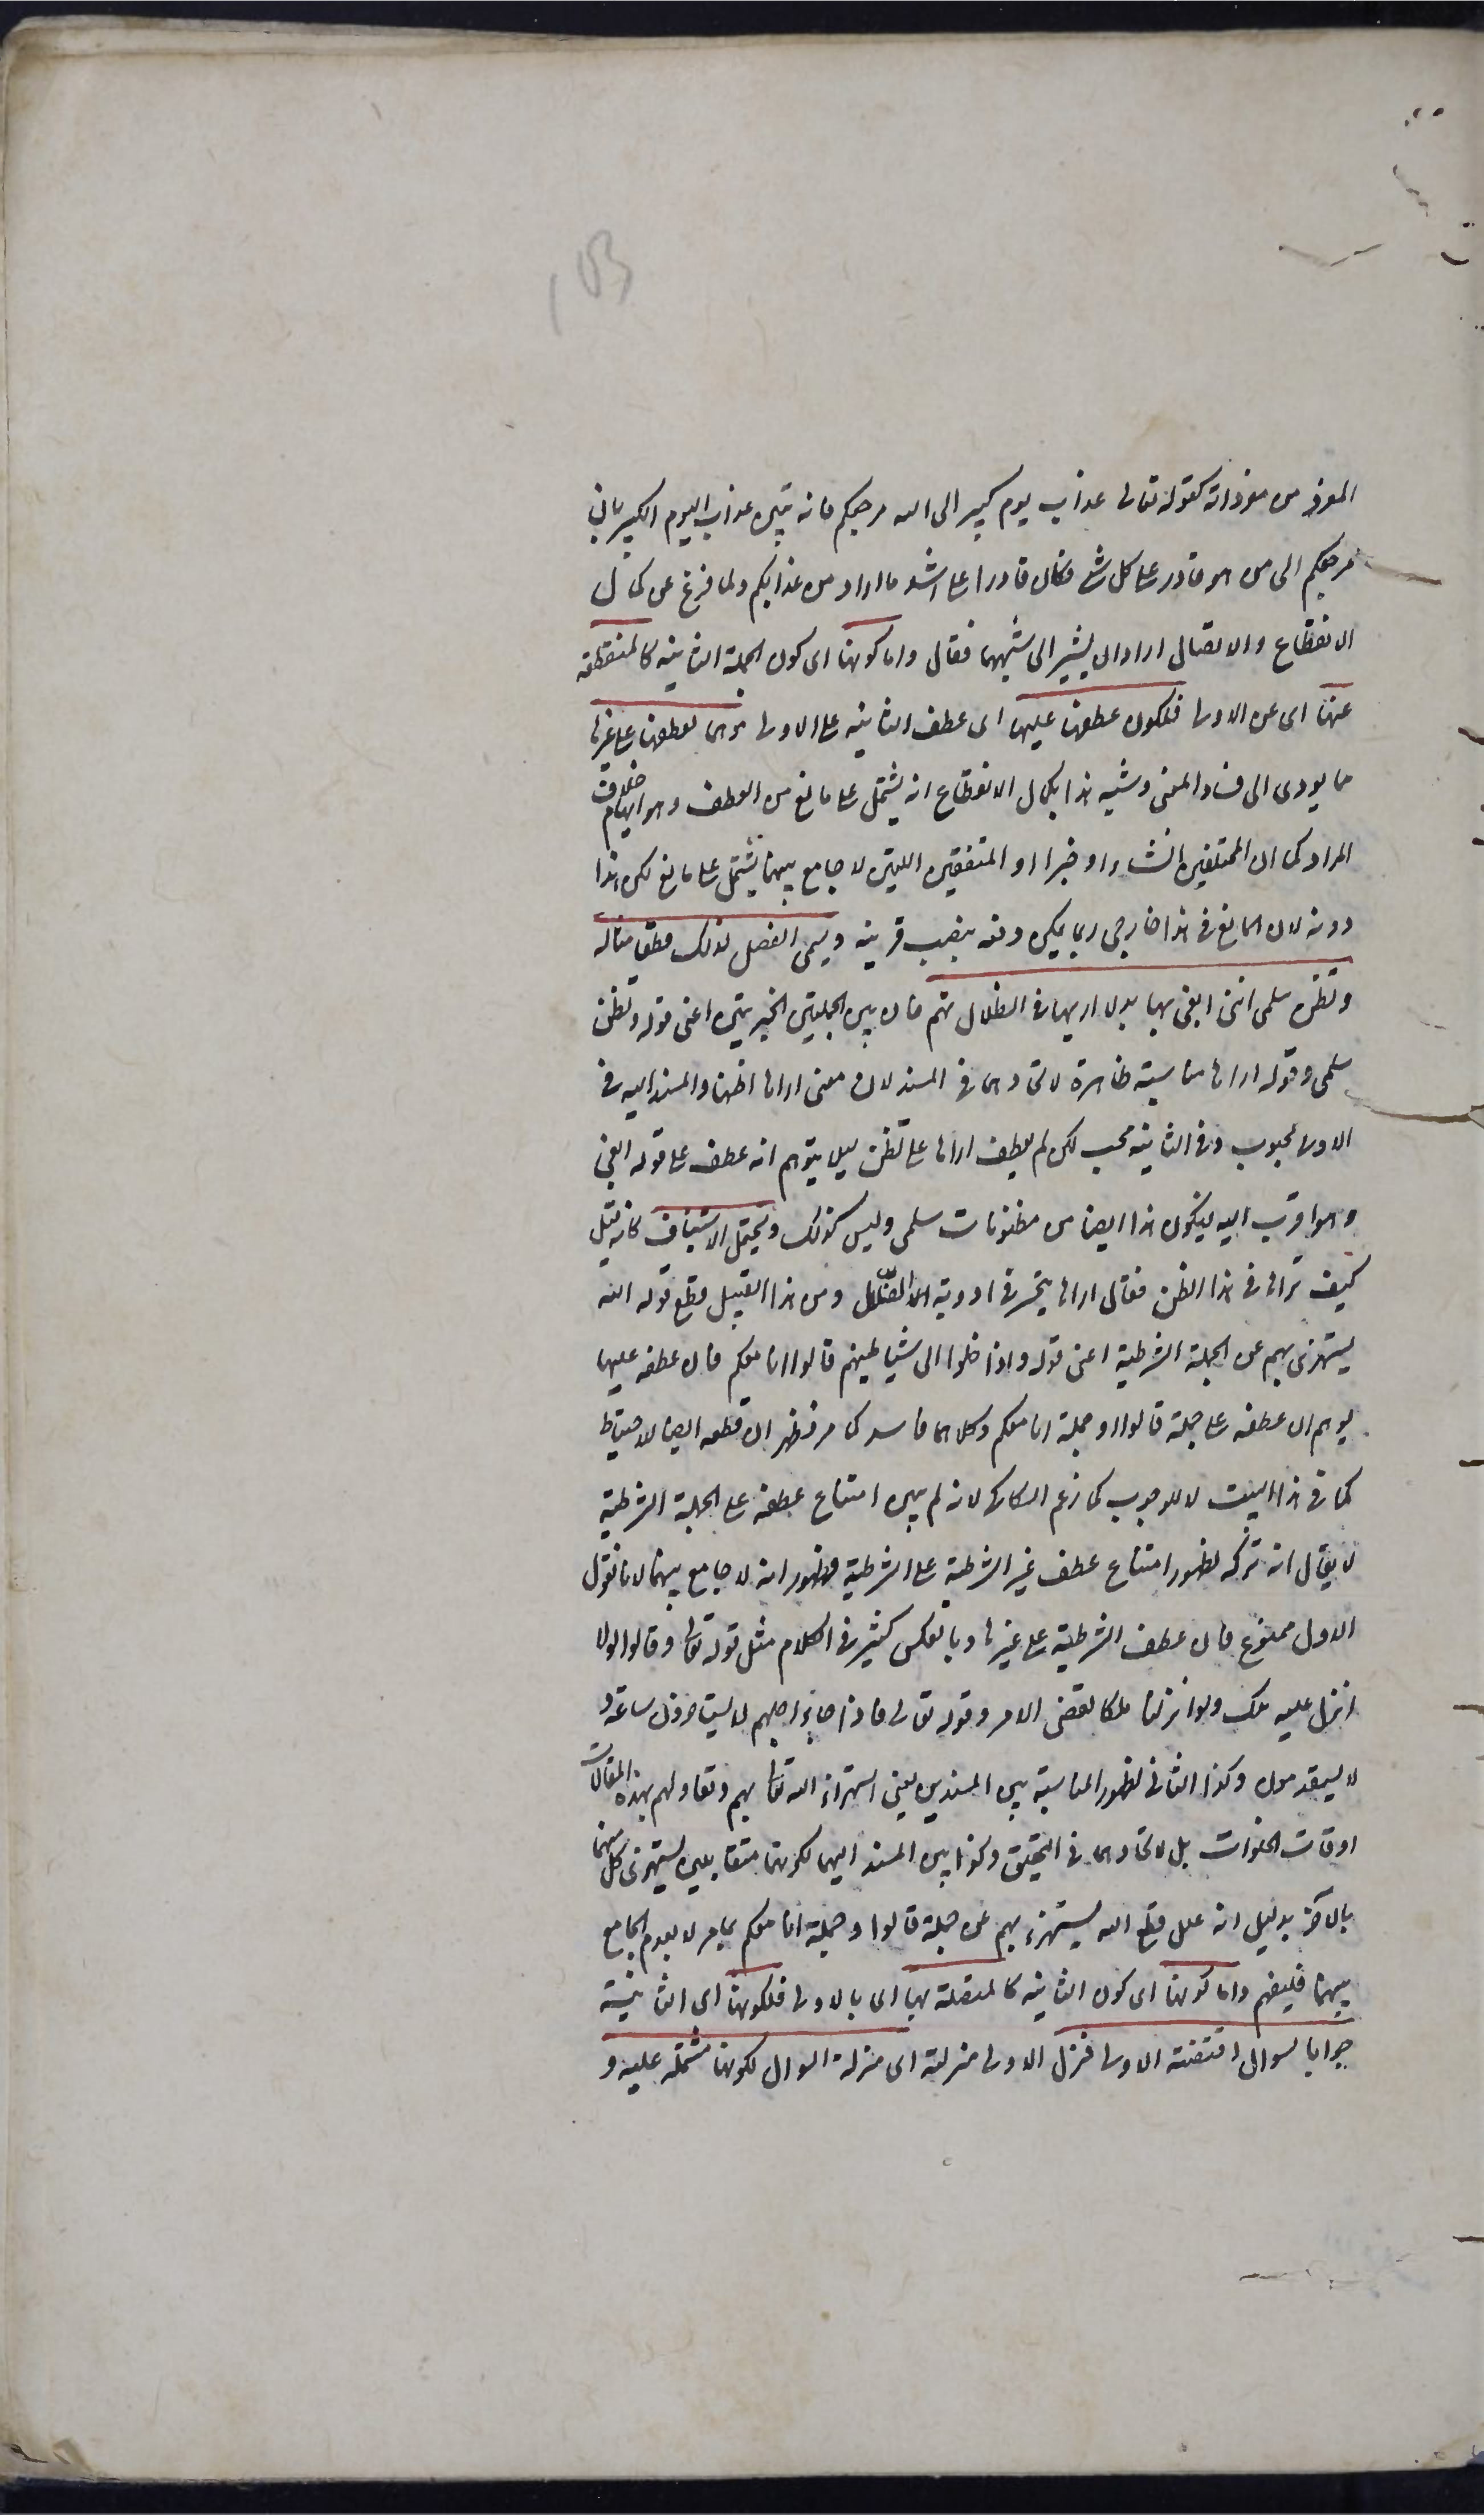 153
المفرد من مفرداته كقوله تعالى عذاب يوم كبير الى الله مرجعكم فانه تبين عذاب اليوم الكبير بان
مرجعكم الى من هو قادر على كل شئ فكان قادرا على اشد ما اراد من عذابكم ولما فرغ من كمال
الانقطاع والاتصال اراد ان يشير الى شبههما فقال واما كونها اى كون الجملة الثانية كالمنقطعة
عنها اى عن الاولى فلكون عطفها عليها اى عطف الثانية على الاولى موهما لعطفها على غيرها
مما يودى الى فساد المعنى وشبه هذا بكمال الانقطاع انه يشتمل على مانع من العطف وهو ايهام خلاف
المراد كما ان المختلفين انشاء او خبرا او المتفقين اللتين لا جامع بينهما يشتمل على مانع لكن هذا
دونه لان المانع فى هذا خارجى ربما يمكن دفعه بنصب قرينة ويسمى الفصل لذلك قطعا مثاله
وتظن سلمى اننى ابغى بها بدلا اريها فى الضلال تهيم فان بين الجملتين الخبريتين اعنى قوله وتظن
سلمى وقوله اراها مناسبة ظاهرة لاتحادهما فى المسند لان معنى اراها اظنها والمسند اليه فى
الاولى محبوب وفى الثانية محب لكن لم يعطف اراها على تظن ليلا يتوهم انه عطف على قوله ابغى
وهو اقرب اليه ليكون هذا ايضا من مظنونات سلمى وليس كذلك ويحتمل الاستيناف كانه قيل
كيف تراها فى هذا الظن فقال اراها يتحير فى اودية الضلال ومن هذا القبيل قطع قوله الله
يستهزئ بهم عن الجملة الشرطية اعنى قوله واذا خلوا الى شياطينهم قالوا انا معكم فان عطفه عليها
يوهم ان عطفه على جملة قالوا او جملة انا معكم وكلاهما فاسد كما مر فظهر ان قطعه ايضا للاحتياط
كما فى هذا البيت لا للوجوب كما زعم السكاكى لانه لم يبين امتناع عطفه على الجملة الشرطية
لا يقال انه تركه لظهور امتناع عطف غير الشرطية على الشرطية وظهور انه لا جامع بينهما لانا نقول
الاول ممنوع فان عطف الشرطية على غيرها وبالعكس كثير فى الكلام مثل قوله تعالى وقالوا لولا
انزل عليه ملك ولو انزلنا ملكا لقضى الامر وقوله تعالى فاذا جاء اجلهم لا يستاخرون ساعة و
لا يستقدمون وكذا الثانى لظهور المناسبة بين المسندين يعنى استهزاء الله تعالى بهم وتقاولهم بهذه المقالات
اوقات الخلوات بل لاتحادهما فى التحقيق وكذا بين المسند اليهما لكونهما متقابلين يستهزئ كل منهما
بالاخر بدليل انه علل قطع الله يستهزء بهم عن جملة قالوا وجملة انا معكم بما مر لا بعدم الجامع
بينهما فليفهم واما كونها اى كون الثانية كالمتصلة بها اى بالاولى فلكونها اى الثانية
جوابا لسوال اقتضته الاولى فنزل الاولى منزلته اى منزلة السوال لكونها مشتملة عليه و